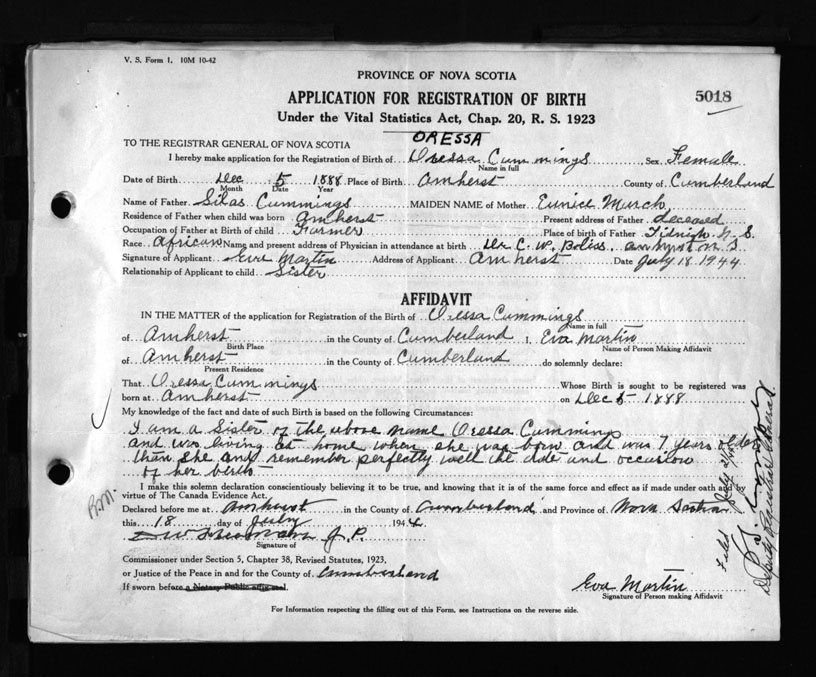 V. S. Form 1. 10M 10-42
PROVINCE OF NOVA SCOTIA
APPLICATION FOR REGISTRATION OF BIRTH
5018
Under the Vital Statistics Act, Chap. 20, R. S. 1923
ORESSA
TO THE REGISTRAR GENERAL OF NOVA SCOTIA
I hereby make application for the Registration of Birth of Oressa Cummings, Sex Female
Name in full
Date of Birth Dec 5 1888 Place of Birth Amherst County of Cumberland
Month Date Year
Name of Father Silas Cummings MAIDEN NAME of Mother Eunice March
Residence of Father when child was born Amherst Present address of Father deceased
Occupation of Father at Birth of child Farmer Place of birth of Father N. S.
Race African Name and present address of Physician in attendance at birth Dr C. W. Bliss. N S
Signature of Applicant Eva Martin Address of Applicant Amherst Date July 18 1944
Relationship of Applicant to child Sister
AFFIDAVIT
IN THE MATTER of the application for Registration of the Birth of Oressa Cummings
Name in full
of Amherst in the County of Cumberland I, Eva Martin
Birth Place Name of Person Making Affidavit
of Amherst in the County of Cumberland do solemnly declare:
Present Residence
That Oressa Cummings Whose Birth is sought to be registered was
born at Amherst on Dec 5 1888
My knowledge of the fact and date of such Birth is based on the following Circumstances:
I am a Sister of the above name Oressa Cummings
and was living at home when she was born and was 7 years older
than she and remember perfectly well the date and occasion
of her birth
I make this solemn declaration conscientiously believing it to be true, and knowing that it is of the same force and effect as if made under oath and by
virtue of The Canada Evidence Act.
Declared before me at Amherst in the County of Cumberland and Province of Nova Scotia
this 18 day of July 1944
J. P.
Signature of
Commissioner under Section 5, Chapter 38, Revised Statutes, 1923.
or Justice of the Peace in and for the County of Cumberland
If sworn before a Notary Public affix seal.
Eva Martin
Signature of Person making Affidavit
For Information respecting the filling out of this Form, see Instructions on the reverse side.
Filed July
Deputy Registrar General.